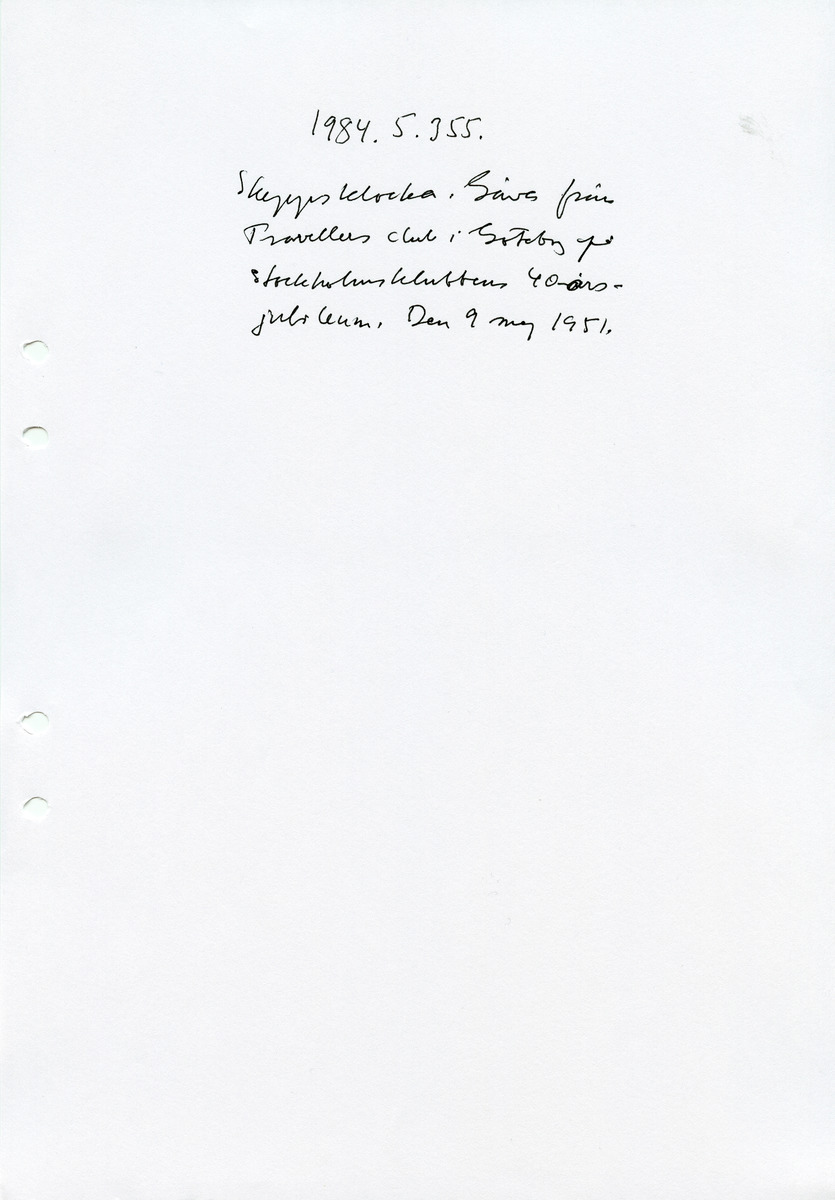 1984.5.355.
Skeppsklocka. Gåva från
Travellers club i Göteborg på
Stockholmsklubbens 40-års-
jubileum. Den 9 maj 1951.